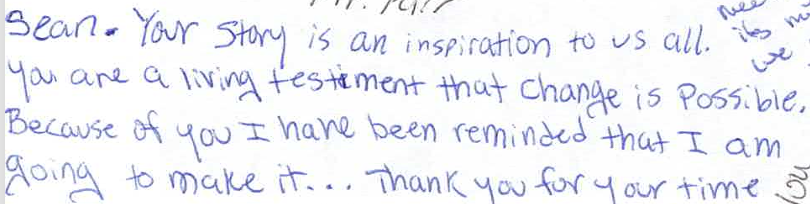 Sean. Your Story is an inspiration to us all.
You are a living testiment that change is Possible.
Because of you I have been reminded that I am
going to make it... Thank you for your time